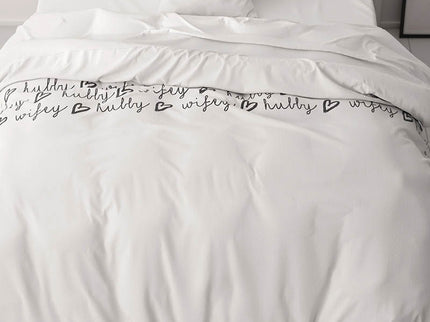 hubby ♡ hubby ♡ wifey ♡ hubby
♡ wifey ♡ hubby ♡ wifey ♡ hubby ♡ wifey